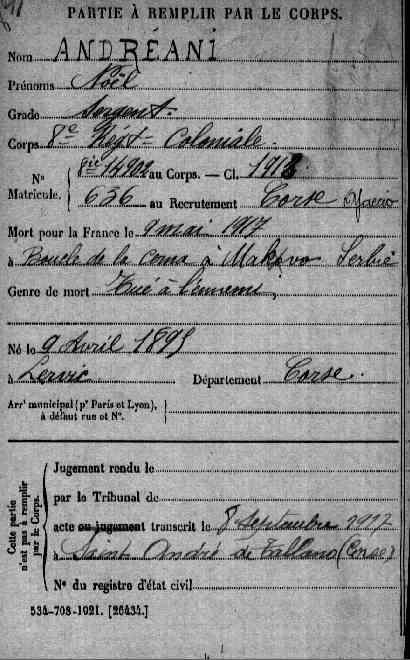 PARTIE À REMPLIR PAR LE CORPS.
Nom ANDRÉANI
Prénoms Noël
Grade Sergent.
Corps 8e Régt Colonial
N° Matricule. 14902 au Corps. — Cl. 1915
636 au Recrutement Corse Ajaccio
Mort pour la France le 9 mai 1917
à Boucle de la Cerna à Makovo Serbie
Genre de mort Tué à l'ennemi
Né le 9 Avril 1895
à Levie Département Corse.
Arrt municipal (pr Paris et Lyon),
à défaut rue et N°.
Cette partie n'est pas à remplir par le Corps.
Jugement rendu le
par le Tribunal de
acte ou jugement transcrit le 8 Septembre 1917
à Saint André de Tallano (Corse)
N° du registre d'état civil
534-708-1021. [26434.]